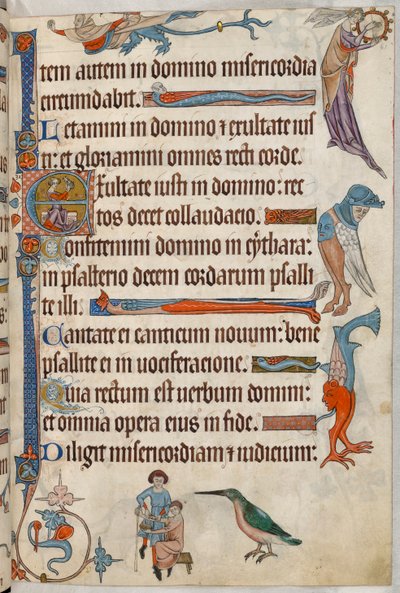 tem autem in domino misericordia
circumdabit.
Letamini in domino ⁊ exultate ius
ti: et gloriamini omnes recti corde.
Exultate iusti in domino: rec
tos decet collaudacio.
Confitemini domino in cythara:
in psalterio decem cordarum psalli
te illi.
Cantate ei canticum nouum: bene
psallite ei in uociferacione.
Quia rectum est uerbum domini:
et omnia opera eius in fide.
Diligit misericordiam ⁊ iudicium: